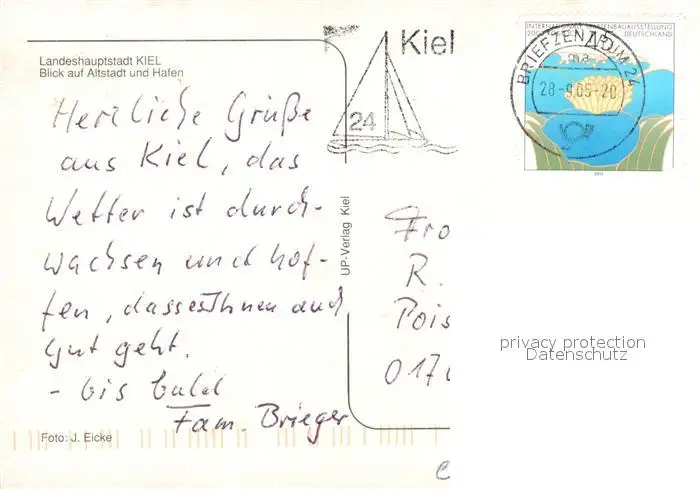 Landeshauptstadt KIEL
Blick auf Altstadt und Hafen
Herzliche Grüße
aus Kiel, das
Wetter ist durch-
wachsen und hof-
fen, dass es Ihnen auch
gut geht.
- bis bald
Fam. Brieger
Foto: J. Eicke
UP-Verlag Kiel
Kiel
24
BRIEFZENTRUM 24
28-9.05-20
INTERNATIONALE GARTENBAUAUSSTELLUNG
DEUTSCHLAND
R.
Pois
017
privacy protection
Datenschutz